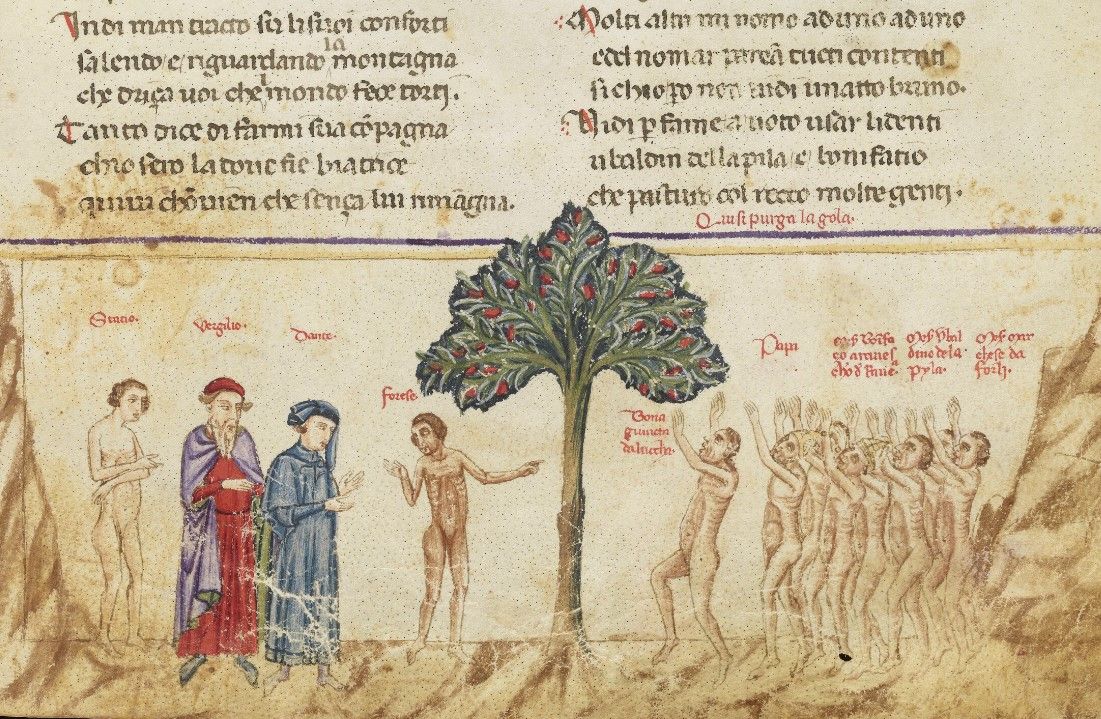 Indi man tracto su li suoi conforti
salendo e riguardando la montagna
che driça voi che l mondo fece torti.
Tanto dice di farmi sua cōpagna
chio sero la doue fie biatrice
quiui chōuien che sença lui rimāgna.
Molti altri mi nomo ad uno ad uno
e del nomar pareā tucti contenti
si chio pero non uidi un atto bruno.
Vidi p fame a uoto usar li denti
ubaldin dellapila e bonifatio
che pasturo col rocco molte genti.
Qui si purga la gola.
Statio.
Vergilio.
Dante.
forese
Bona
giuncta
da luccha.
Papa
meſ Bonifa
meſ Vbal
dino dela
pyla.
meſ mar
chese da
forli.